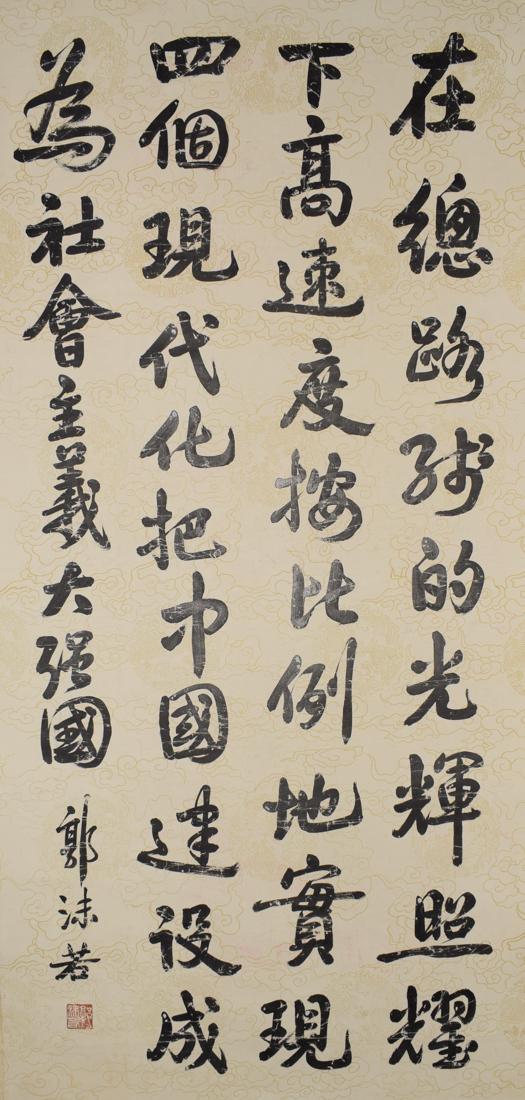 在總路线的光輝照耀
下高速度按比例地實現
四個現代化把中國建设成
為社會主義大强國
郭沫若